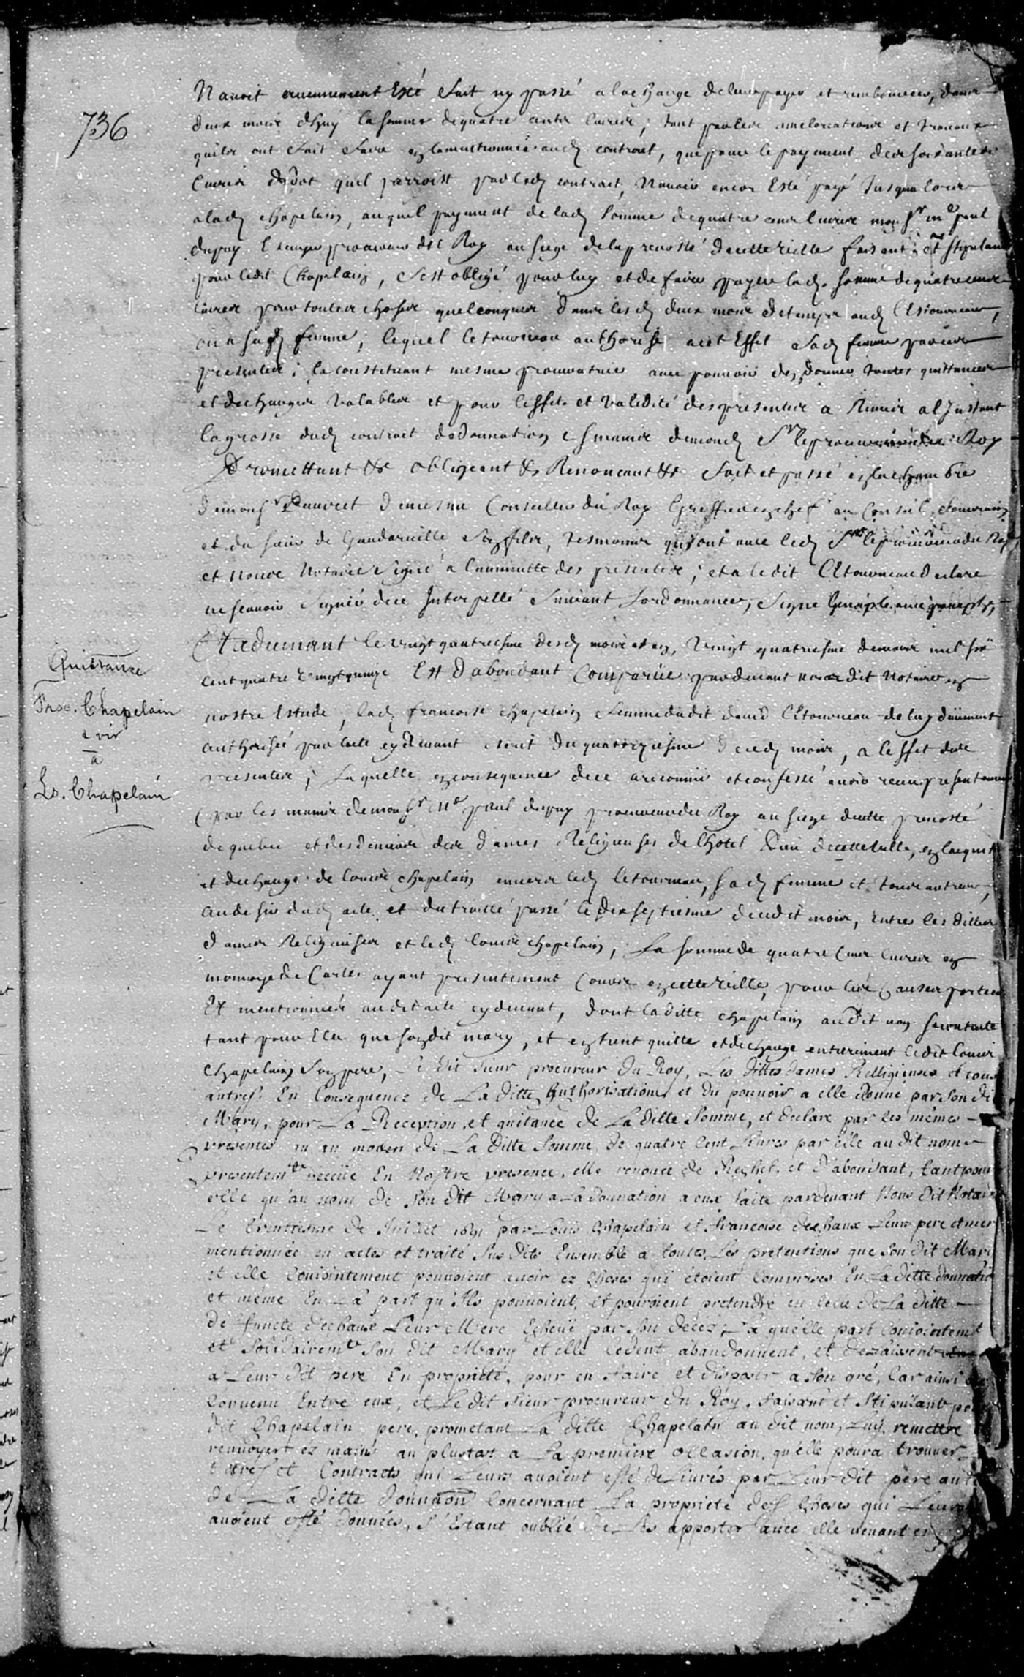 736
N'avoit aucunement Esté fait ny passé a la charge de leur payer et rembourcer, dans
deux mois d'huy la somme de quatre cents livres, tant pour les ameliorations et travaux
quils ont fait faire mentionnés aud contract, que pour le payment des soixante
livres de dot quil paroist par led contract, N'avoir encor Esté payé Jusqua lors
a lad chapelain, auquel payment de lad somme de quatre cens livres mons.r m.e paul
dupuy procureur du Roy au siege de la prevosté de cette ville faisant et stipulant
pour ledit Chapelain, s'est obligé pour luy et de faire payer lad. somme de quatre cens
livres pour toutes choses quelconques dans lesd deux mois de temps aud Letourneau,
ou a sad femme, lequel letourneau authorise a cet Effet sad femme par ces
presentes; la constituant mesme procuratrice avec pouvoir de donner toutes quittances
et descharges valables et pour l'effet et validité des presentes a Remis a l'Instant
la grosse dud contract de donnation es mains de mond S.r le procureur du Roy
Promettant &c obligeant &c Renonceant &c fait et passé en la chambre
de mons.r peuvret de mesnu Conseiller du Roy Greffier en chef au Conseil Souverain
et du sieur de Gaudarville son fils, tesmoins qui ont avec led S.r le procureur du Roy
et Nous Notaire signé a la minutte des presentes; et a ledit Letourneau declaré
ne scavoir signer de ce Interpellé suivant l'ordonnance, Signé
Quittance
Et advenant le vingt quatriesme desd mois et an, vingt quatriesme de mil six
cent quatre vingt quinze Est d'abondant Comparüe pardevant nous dit Notaire en
Fran. Chapelain
nostre Estude, lad francoise chapelain femme dudit david Letourneau de luy düement
a
authorisée par lacte cy devant escrit du quatorziesme de ced mois, a l'effet des
Ls. Chapelain
presentes; Laquelle, en consequence de ce a reconnu et confessé avoir receu presentement
par les mains de mons.r m.e paul dupuy procureur du Roy au siege de cette prevosté
de quebec et des deniers des dames Religieuses de l'hotel Dieu de cette ville, en l'acquit
et descharge de Louis chapelain envers led letourneau, sad femme et tous autres,
au desir dud acte, et du traitté passé le dix septiesme de cedit mois, entre lesdittes
dames Religieuses et led louis chapelain, La somme de quatre Cens livres en
monnoye de Cartes ayant presentement Cours en cette ville, pour les causes portées
Et mentionnées audit acte cy devant, dont laditte chapelain audit nom se contente
tant pour Elle que sondit mary, et en tient quitte et descharge entierement ledit louis
chapelain son pere, Ledit sieur procureur du Roy, Les dittes dames Relligieuses et tous
autres En Consequence de La ditte Authorisation et du pouvoir a elle donné par Son dit
Mary, pour La Reception et quitance de La ditte Somme, et declare par les mêmes
presentes qu'au moyen de La ditte Somme de quatre Cent Livres par elle au dit nom
presentem.t receüe En Nostre presence, elle renonce de Rechef, et d'abondant, tant pour
elle qu'au nom de Son dit Mary a La donnation a eux faite pardevant Nous dit Notaire
Le trentiesme de Juillet 1691 par Louis Chapelain et francoise dechaux Leurs pere et mere
mentionnée en actes et traité Sus dits Ensemble a toutes Les pretentions que Son dit Mary
et elle Conjointement pouvoient avoir ez choses qui étoient Comprises En La ditte donnation
et même En La part qu'ils pouvoient, et pouroient pretendre en celle de La ditte
defuncte dechaux Leur Mere Echeüe par Son Deces, La quelle part conjointement
et Solidairem.t Son dit Mary et elle Cedent abandonnent, et delaissent
a Leur dit pere En proprieté, pour en faire et disposer a Son gré, Car ainsi
Convenu Entre eux, et Le dit Sieur procureur du Roy, faisant et Stipulant pour
dit Chapelain pere, prometant La ditte Chapelain au dit nom, Luy remettre
renvoyer ez mains au plustot a La premiere occasion, qu'elle poura trouver
titres et Contracts qui Leurs avoient esté delivrés par Leur dit pere
de La ditte donnaon Concernant La proprieté des Choses qui Leurs
avoient esté données, S'Estant oublié de Les apporter avec elle venant en